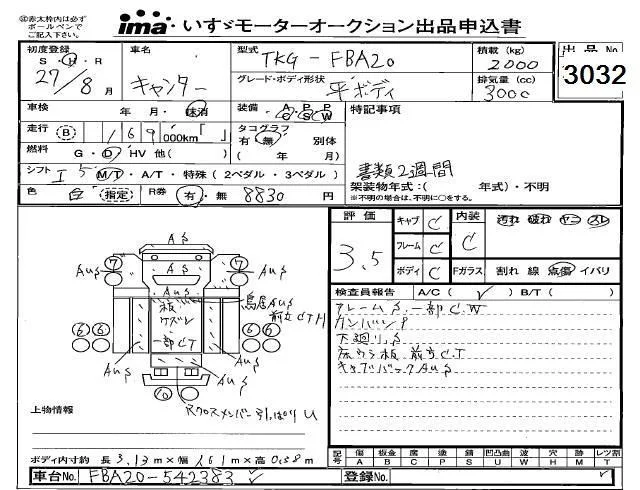 ㊟赤太枠内は必ず
ボールペンで
ご記入下さい。
ima いすゞモーターオークション出品申込書
初度登録 車名 型式 TKG-FBA20 積載 (kg) 2000 出品No.
S・H・R 27/8月 キャンター グレード・ボディ形状 平ボディ 排気量 (cc) 3000 3032
車検 年・月・抹消 装備 A/C P/S P/W 特記事項
走行 B 169 000km「 」 タコグラフ 有・無 別体
燃料 G・D・HV 他( ) ( 年 月)
シフト I5 M/T・A/T・特殊(2ペダル・3ペダル) 書類2週間
色 白 (指定) R券 有・無 8830円 架装物年式:( 年式)・不明
※不明の場合は、不明に○をする。
評価 キャブ C 内装 汚れ 破れ ヤニ スレ
3.5 フレーム C C
ボディ C Fガラス 割れ 線 点傷 イバリ
検査員報告 A/C( ✓ ) B/T( )
フレームS.一部C.W
カンバンP
下廻りS
床ウラ板.前立C.T
キャブバックAUS
AS
7 7
AUS AUS
AUS
板
ケズレ
一部CT
鳥居AUS
前立CTH
AUS AUS
6 6 6 6
10
Rクロスメンバー引っぱりU
上物情報
ボディ内寸約 長 3.13m×幅 1.61m×高 0.38m
記号 傷 板金 腐 塗 錆 凹凸曲 波 穴 跡 レツ割
A B C P S U W H M T
車台No. FBA20-542383 ✓ 登録No. ✓